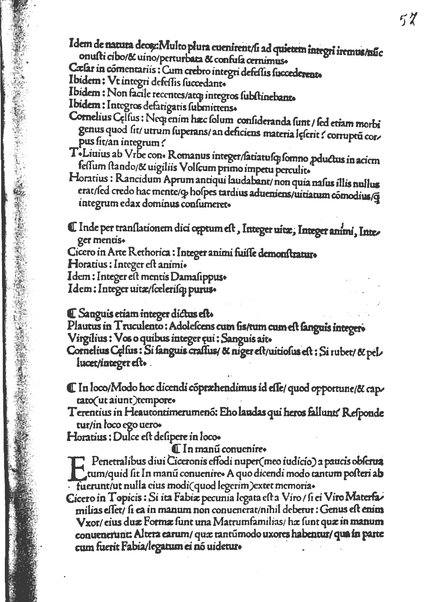 57
Idem de natura deoꝝ: Multo plura euenirent/si ad quietem integri iremus/nūc
onusti cibo/& uino/perturbata & confusa cernimus.
Cæsar in cōmentariis: Cum crebro integri defessis succederent.
Ibidem: Vt integri defessis succedant.
Ibidem: Non facile recentes/atqꝫ integros substinebant.
Ibidem: Integros defatigatis submittens.
Cornelius Cęlsus: Neqꝫ enim hæc solum consideranda sunt/sed etiam morbi
genus quod sit/utrum superans/an deficiens materia lęserit? corruptū cor-
pus sit/an integrum?
T. Liuius ab Vrbe con. Romanus integer/satiatusqꝫ somno ꝓductus in aciem
fessum stando/& uigiliis Volscum primo impetu perculit.
Horatius: Rancidum Aprum antiqui laudabant/non quia nasus illis nullus
erat/sed credo hac mente/ꝙ hospes tardius adueniens/uitiatum cōmodius/ꝙ̃
integrum edax dominus consumeret.
¶ Inde per translationem dici cęptum est, Integer uitæ, Integer animi, Inte-
ger mentis.
Cicero in Arte Rethorica: Integer animi fuisse demonstratur.
Horatius: Integer est animi.
Idem: Integer est mentis Damasippus.
Idem: Integer uitæ/scelerisqꝫ purus.
¶ Sanguis etiam integer dictus est.
Plautus in Truculento: Adolescens cum sis/tum cum est sanguis integer.
Virgilius: Vos o quibus integer ęui: Sanguis ait.
Cornelius Cęlsus: Si sanguis crassus/& niger est/uitiosus est: Si rubet/& pel-
lucet/integer est.
¶ In loco/Modo hoc dicendi cōpræhendimus id esse/quod opportune/& cap-
tato(ut aiunt)tempore.
Terentius in Heautontimerumenō: Eho laudas qui heros fallunt? Responde
tur/in loco ego uero.
Horatius: Dulce est desipere in loco.
¶ In manū conuenire.
E Penetralibus diui Ciceronis effodi nuper(meo iudicio)a paucis obserua
tum/quid sit In manum conuenire. A quo dicendi modo tantum posteri ab
fuerunt/ut nulla eius modi(quod legerim)extet memoria.
Cicero in Topicis: Si ita Fabiæ pecunia legata est a Viro/si ei Viro Materfa-
milias esset/si ea in manum non conuenerat/nihil debetur: Genus est enim
Vxor/eius duæ Formæ sunt una Matrumfamilias/hæ sunt quæ in manum
conuenerunt: Altera earum/quæ tantūmodo uxores habentur/qua in parte
cum fuerit Fabia/legatum ei nō uidetur.